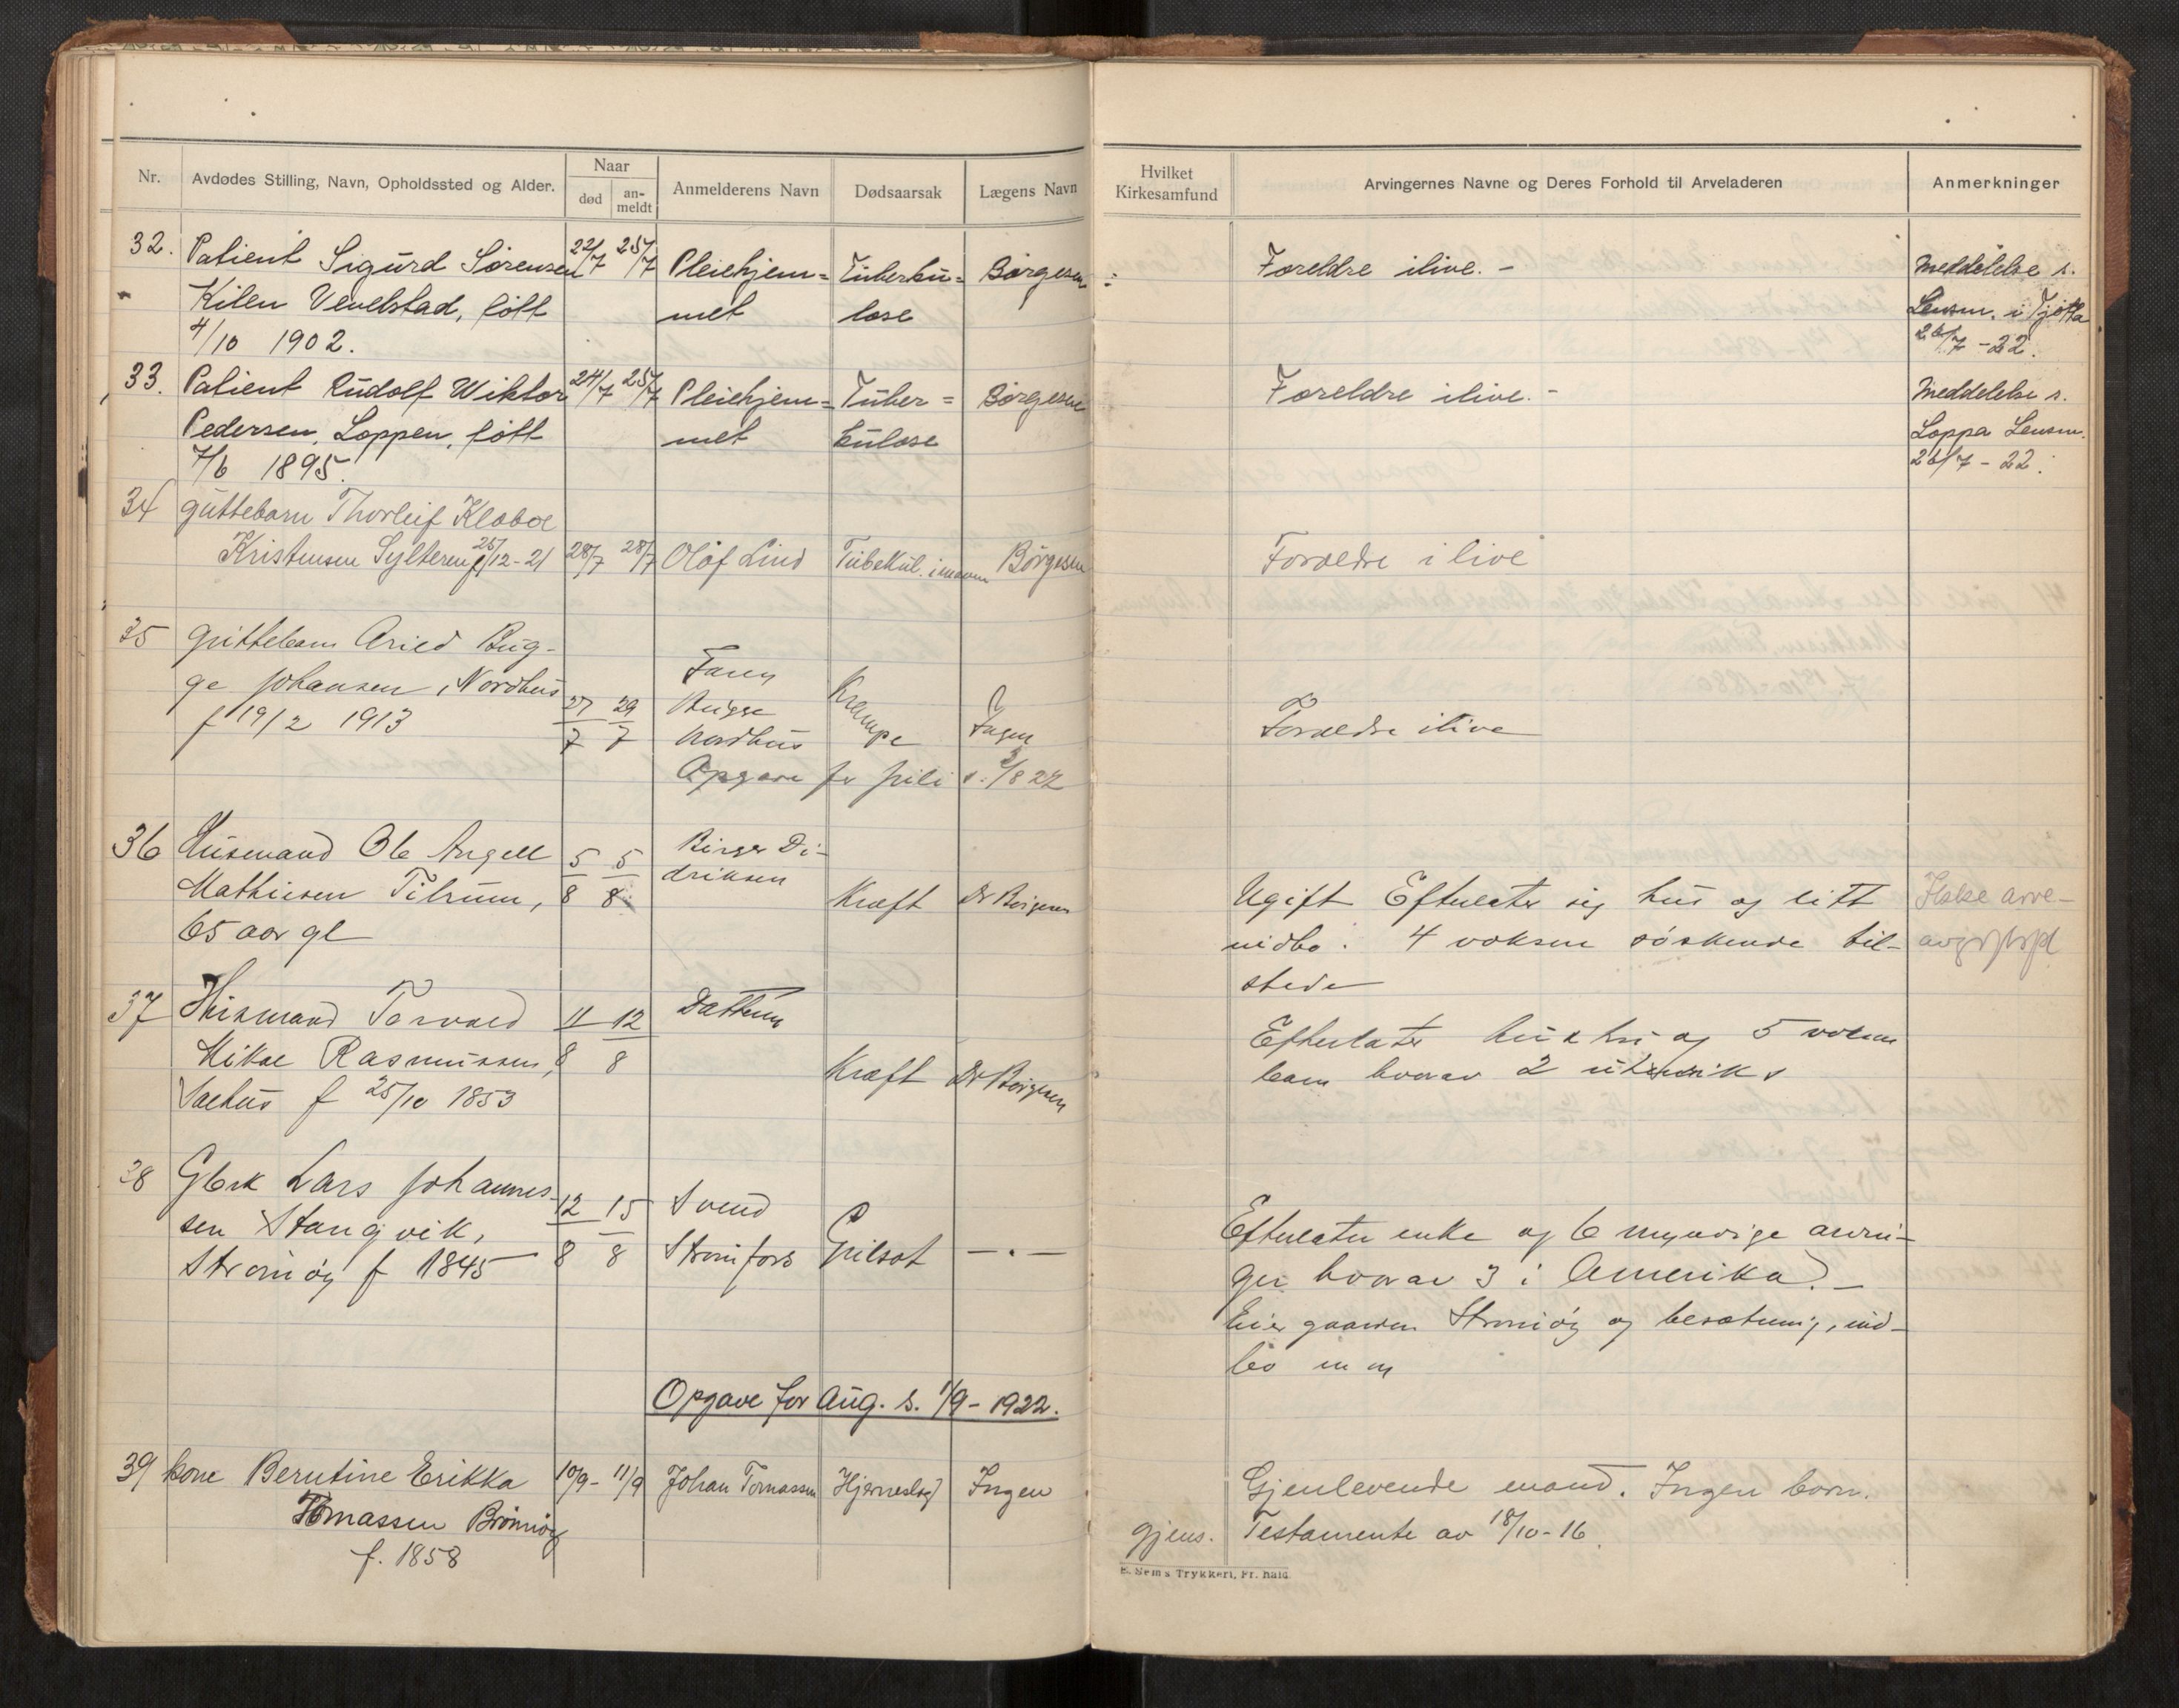 Nr. Avdødes Stilling, Navn, Opholdssted og Alder. Naar død an-meldt Anmelderens Navn Dødsaarsak Lægens Navn Hvilket Kirkesamfund Arvingernes Navne og Deres Forhold til Arveladeren Anmerkninger
32. Patient Sigurd Sørensen 22/7 25/7 Pleiehjem= Tuberku= Børgesen Foreldre ilive. - Meddelelse s.
Kilen Vevelstad, født met lose Lensm. i Tjøtta
4/10 1902. 26/7 - 22.
33. Patient Rudolf Wiktor 24/7 25/7 Pleiehjem= Tuber= Børgesen Foreldre ilive. - Meddelelse s.
Pedersen, Loppen, født met kulose Loppa Lensm.
7/6 1895. 26/7 - 22.
34 guttebarn Thorleif Klæboe
Kristensen Sylteren f 25/12-21 28/7 28/7 Olaf Lind Tubekul. Børgesen Forældre i live
35 guttebarn Bug-
ge Johansen, Nordhus 27/7 29/7 Bugge Krampe Ingen Forældre ilive
f 19/2 1913 Nordhus
Opgave for juli s. /8 22
36 Husmand Ole Angell 5/8 5/8 Birger Di-
Mathisen Tilrum, driksen Kræft Dr Børgesen Ugift Efterlater sig hus og litt Ikke arve-
65 aar gl indbo. 4 voksne søskende til-
stede
37 Husmand Torvald 11/8 12/8 Datteren Efterlater hustru og 5 voksne
Mikal Rasmussen, Kræft Dr Børgesen barn hvorav 2 utenriks
f 25/10 1853
38 Gbrk Lars Johannes-
sen Stangvik, 12/8 15/8 Svend Efterlater enke og 6 myndige arvin-
Strømøy f 1845 Strømfors Gulsot — . — ger hvorav 3 i Amerika. -
Eier gaarden Strømøy og besætning, ind-
bo m m
Opgave for Aug. s. 1/9 - 1922.
39 kone Berntine Erikka 10/9 - 11/9 Johan Tomassen Hjerneslag Ingen Gjenlevende mand. Ingen børn.
Tomassen Brønnøy gjens. Testamente av 18/10-16.
f. 1858
E. Sem's Trykkeri, Fr.hald